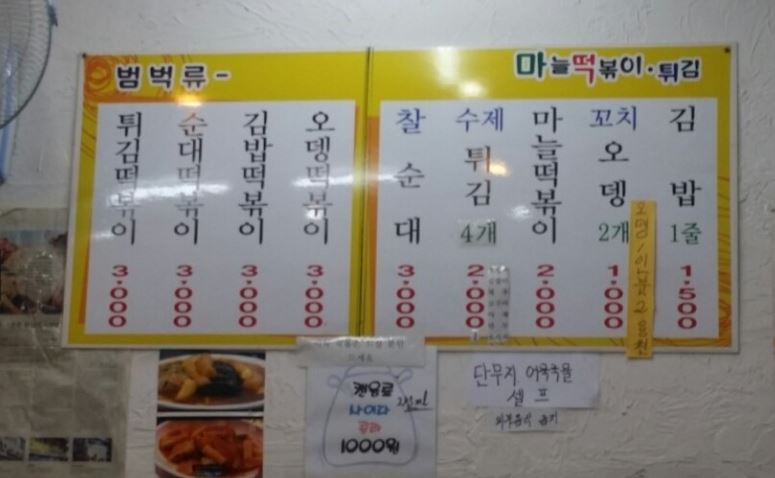 범벅류-
튀김떡볶이
3,000
순대떡볶이
3,000
김밥떡볶이
3,000
오뎅떡볶이
3,000
마늘떡볶이·튀김
찰순대
3,000
수제
튀김
4개
2,000
마늘떡볶이
2,000
꼬치
오뎅
2개
1,000
김밥
1줄
1,500
오뎅1인분2음천
캔음료
사이다
콜라
1000원
단무지 어묵국물
셀프
외부음식 금지